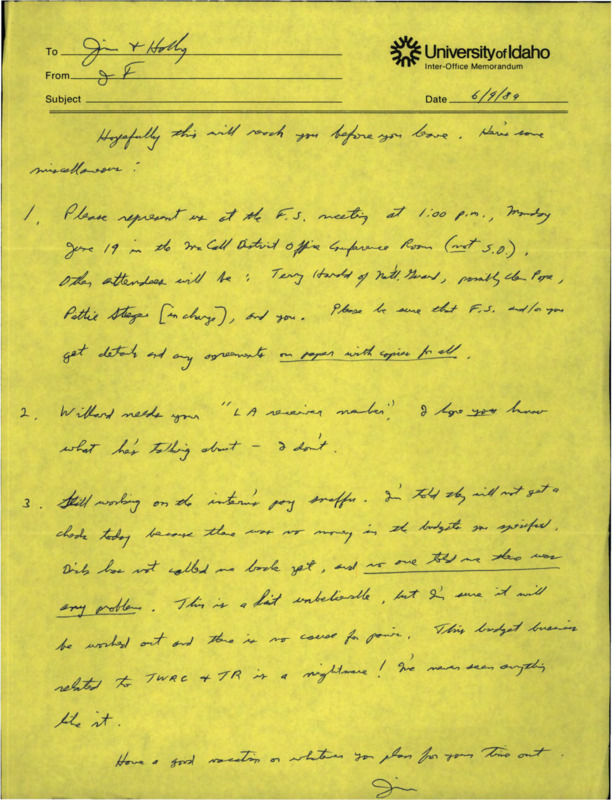 To Jim & Holly
University of Idaho
From J F
Inter-Office Memorandum
Subject
Date 6/9/89
Hopefully this will reach you before you leave. Here's some
miscellaneous:
1. Please represent us at the F.S. meeting at 1:00 p.m., Monday
June 19 in the McCall District Office Conference Room (not S.O.).
Other attendees will be: Terry Harold of Nat'l. Guard, possibly Clem Pope,
Pattie [in charge], and you. Please be sure that F.S. and/or you
get details and any agreements on paper with copies for all.
2. Willard needs your "LA receiver number". I hope you know
what he's talking about - I don't.
3. Still working on the intern's pay snaffu. I'm told they will not get a
check today because there was no money in the budgets you specified.
has not called me back yet, and no one told me there was
any problem. This is a bit unbelievable, but I'm sure it will
be worked out and there is no cause for panic. This budget business
related to TWRC & TR is a nightmare! I've never seen anything
like it.
Have a good vacation or whatever you plan for your time out.
Jim